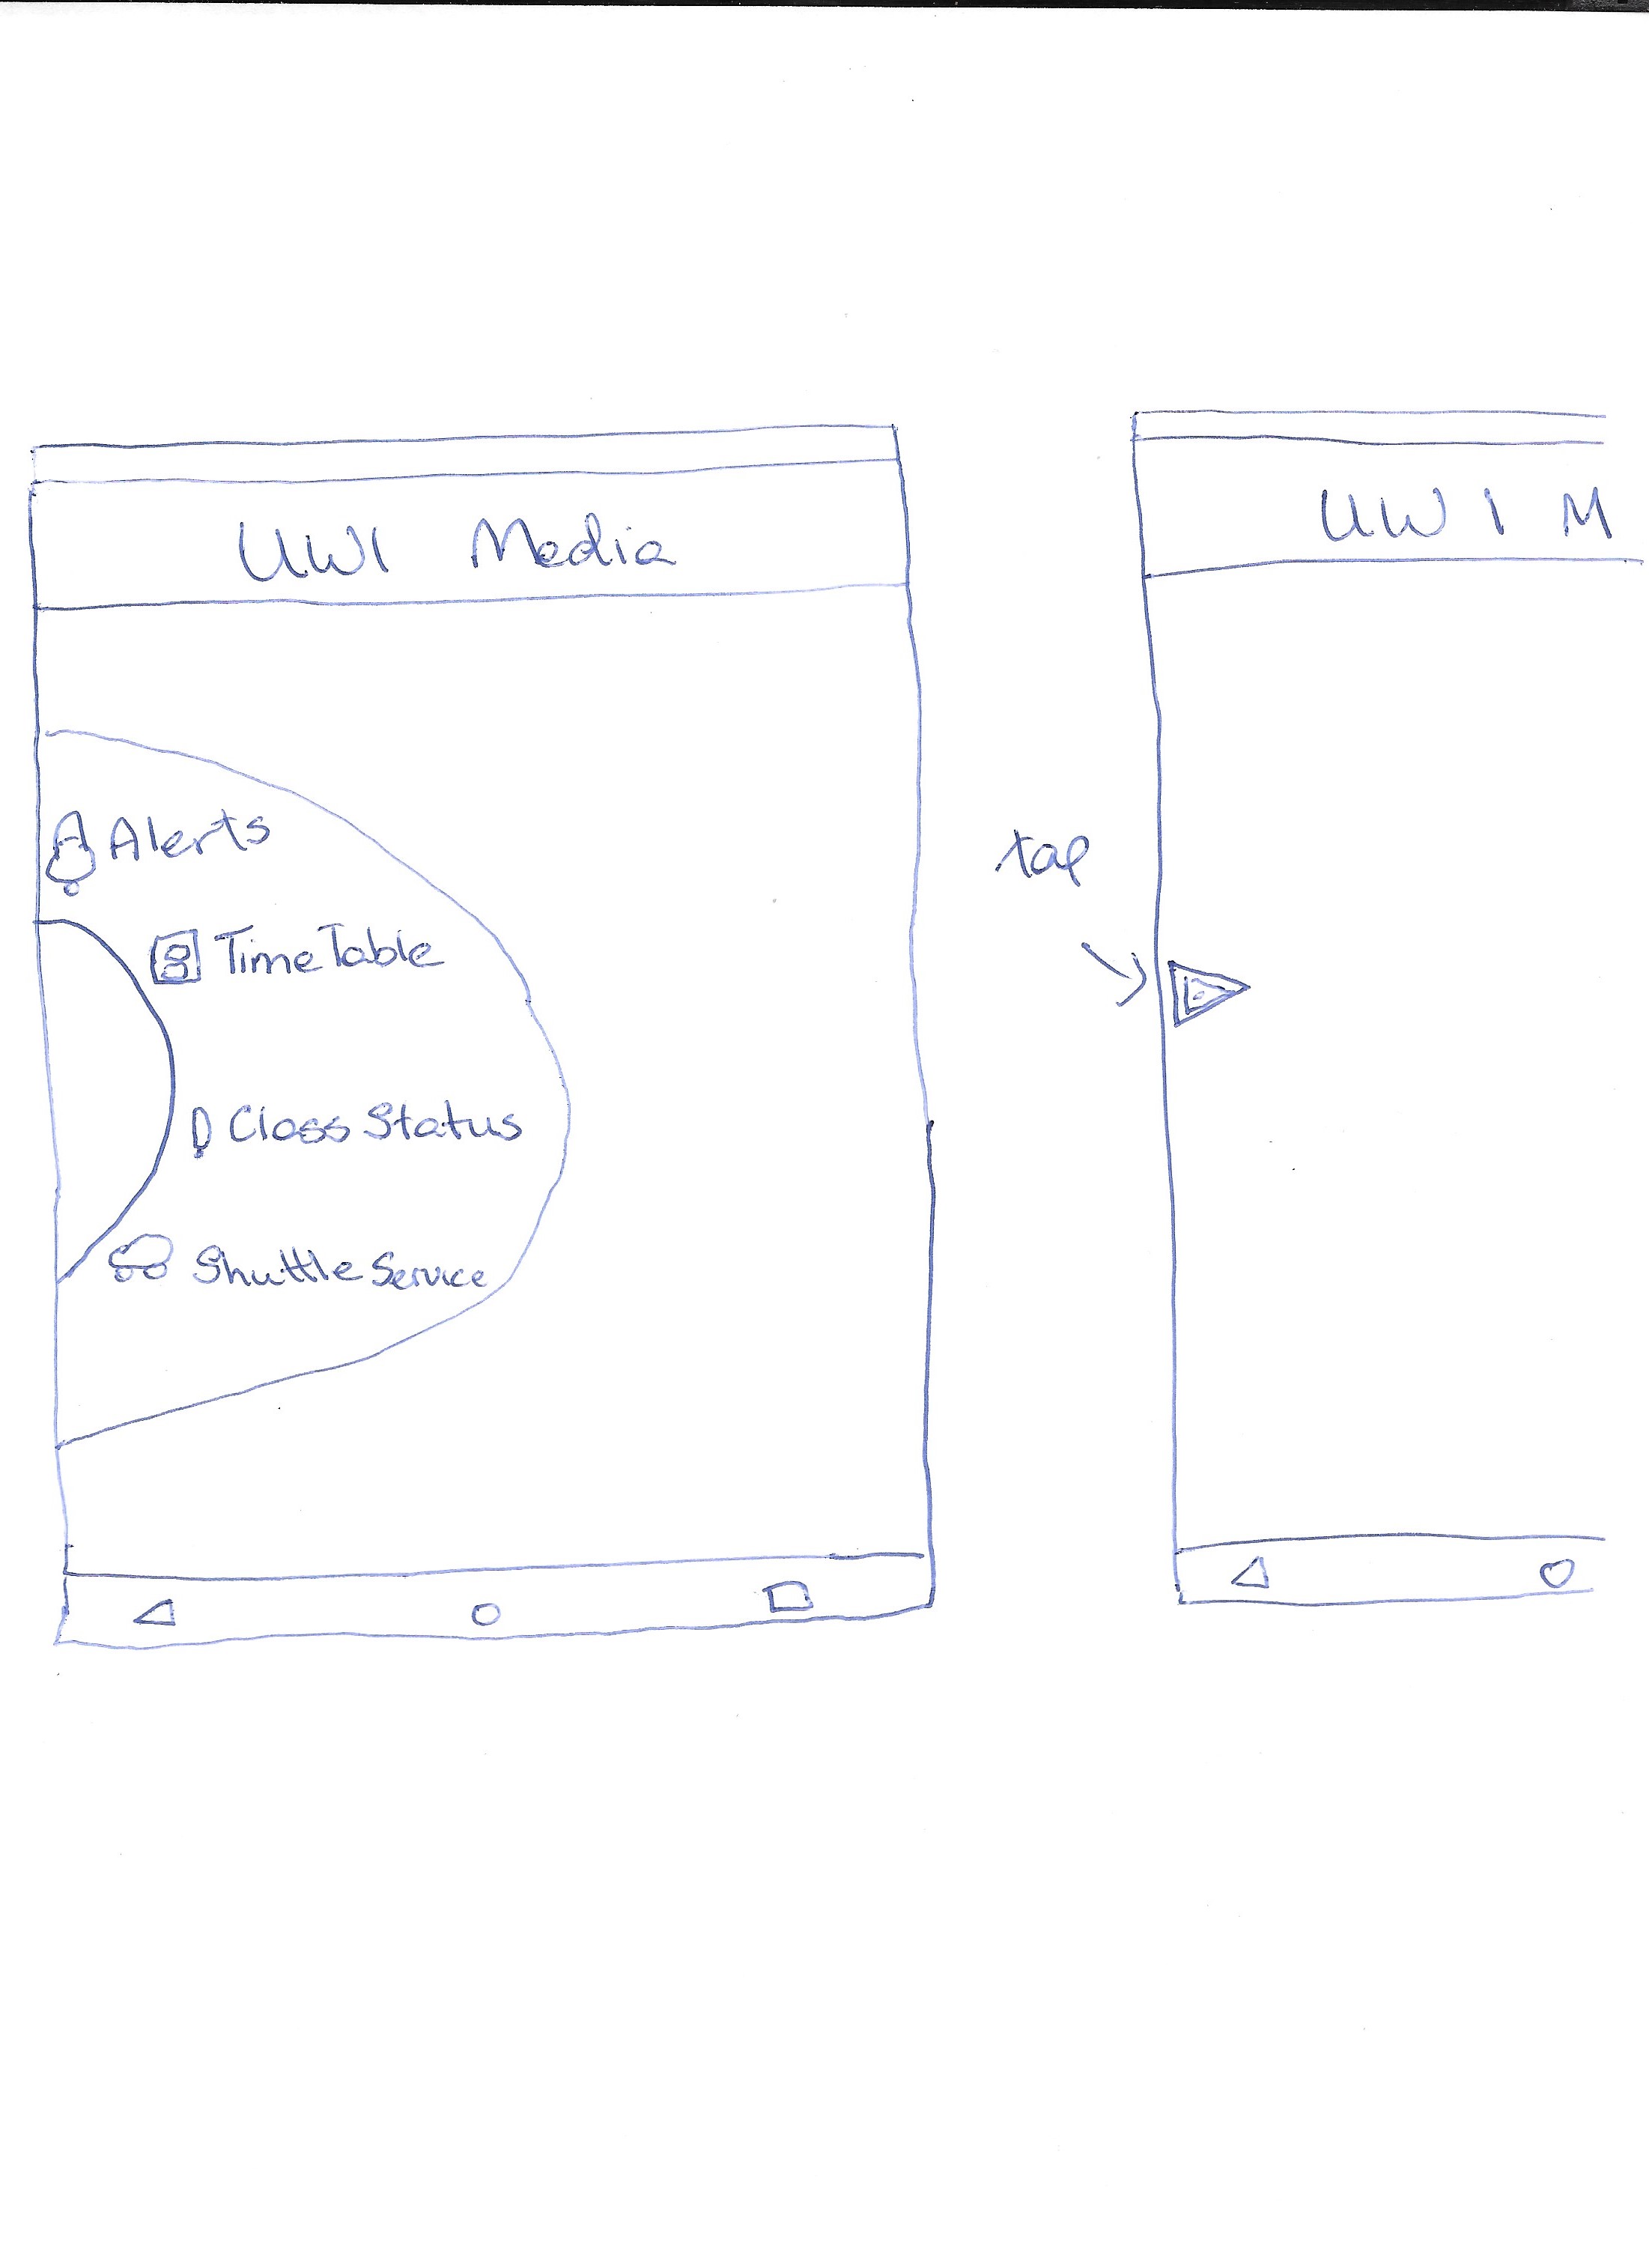 UWI Media
Alerts
Time Table
Class Status
Shuttle Service
UWI M
tap